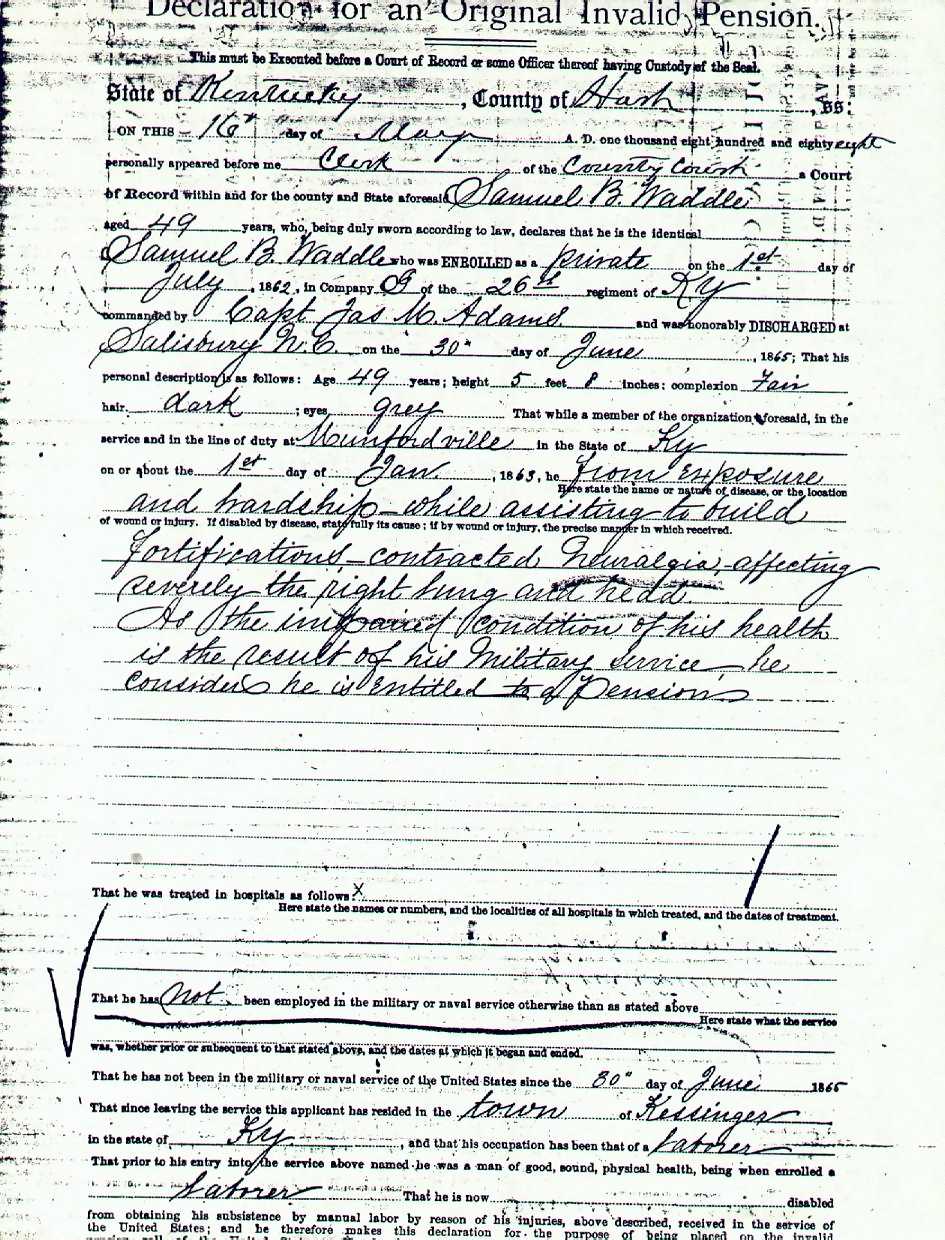 Declaration for an Original Invalid Pension.
This must be Executed before a Court of Record or some Officer thereof having Custody of the Seal.
State of Kentucky, County of Hart, SS:
ON THIS 16th day of May A. D. one thousand eight hundred and eighty eight
personally appeared before me Clerk of the County Court a Court
of Record within and for the county and State aforesaid Samuel B. Waddle
aged 49 years, who, being duly sworn according to law, declares that he is the identical
Samuel B. Waddle who was ENROLLED as a private on the 1st day of
July, 1862, in Company G of the 26th regiment of Ky
commanded by Capt Jas M. Adams and was honorably DISCHARGED at
Salisbury N.C. on the 30" day of June, 1865; That his
personal description is as follows: Age 49 years; height 5 feet 8 inches; complexion Fair
hair dark; eyes grey That while a member of the organization aforesaid, in the
service and in the line of duty at Munfordville in the State of Ky
on or about the 1st day of Jan., 1863, he from exposure
Here state the name or nature of disease, or the location
and hardship - while assisting to build
of wound or injury. If disabled by disease, state fully its cause; if by wound or injury, the precise manner in which received.
fortifications - contracted Neuralgia, affecting
severely the right lung and head
As the impaired condition of his health
is the result of his Military service he
considers he is entitled to a Pension
That he was treated in hospitals as follows: X
Here state the names or numbers, and the localities of all hospitals in which treated, and the dates of treatment.
That he has not been employed in the military or naval service otherwise than as stated above
Here state what the service
was, whether prior or subsequent to that stated above, and the dates at which it began and ended.
That he has not been in the military or naval service of the United States since the 30" day of June 1865
That since leaving the service this applicant has resided in the town of Kessinger
in the state of Ky, and that his occupation has been that of a Laborer
That prior to his entry into the service above named he was a man of good, sound, physical health, being when enrolled a
Laborer That he is now disabled
from obtaining his subsistence by manual labor by reason of his injuries, above described, received in the service of
the United States; and he therefore makes this declaration for the purpose of being placed on the invalid